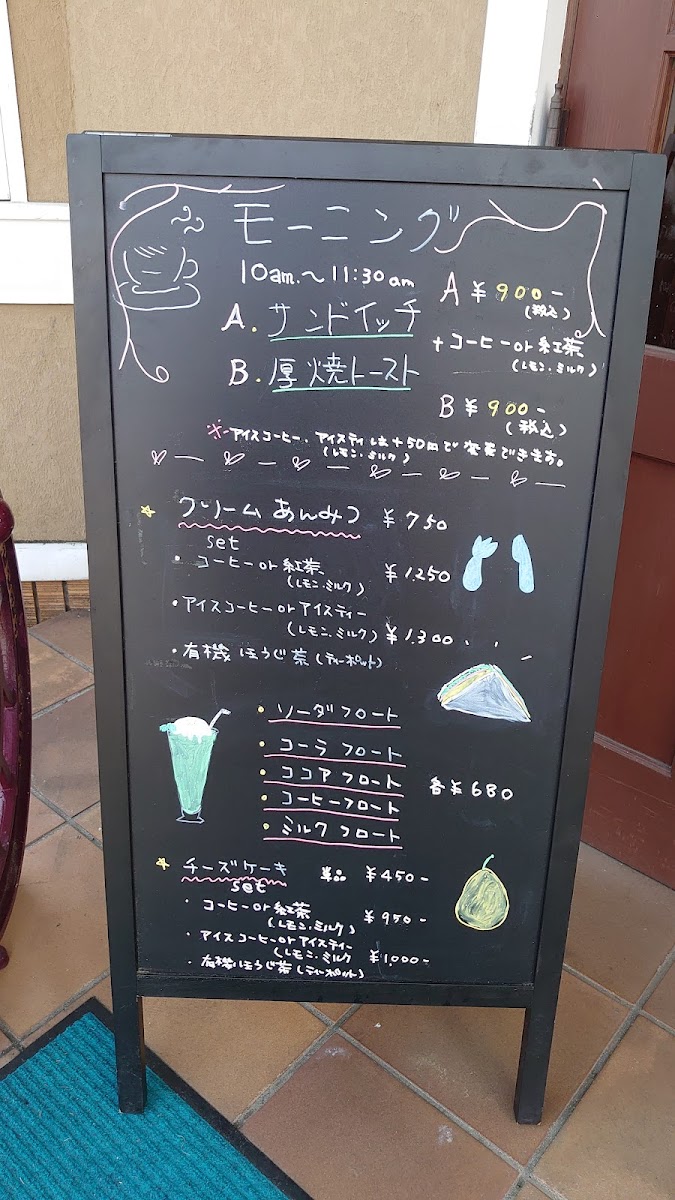 モーニング
10am.～11:30am
A ¥900-
(税込)
A.サンドイッチ
+コーヒーor紅茶
(レモン・ミルク)
B.厚焼トースト
B ¥900-
(税込)
※アイスコーヒー、アイスティは+50円で変更できます。
(レモン・ミルク)
☆クリームあんみつ ¥750
set
・コーヒーor紅茶
(レモン・ミルク) ¥1.250
・アイスコーヒーorアイスティー
(レモン・ミルク) ¥1.300
・有機ほうじ茶(ティーポット)
・ソーダフロート
・コーラフロート
・ココアフロート 各¥680
・コーヒーフロート
・ミルクフロート
☆チーズケーキ 単品 ¥450-
set
・コーヒーor紅茶
(レモン・ミルク) ¥950-
・アイスコーヒーorアイスティー
(レモン・ミルク ¥1,000-
・有機ほうじ茶(ティーポット)